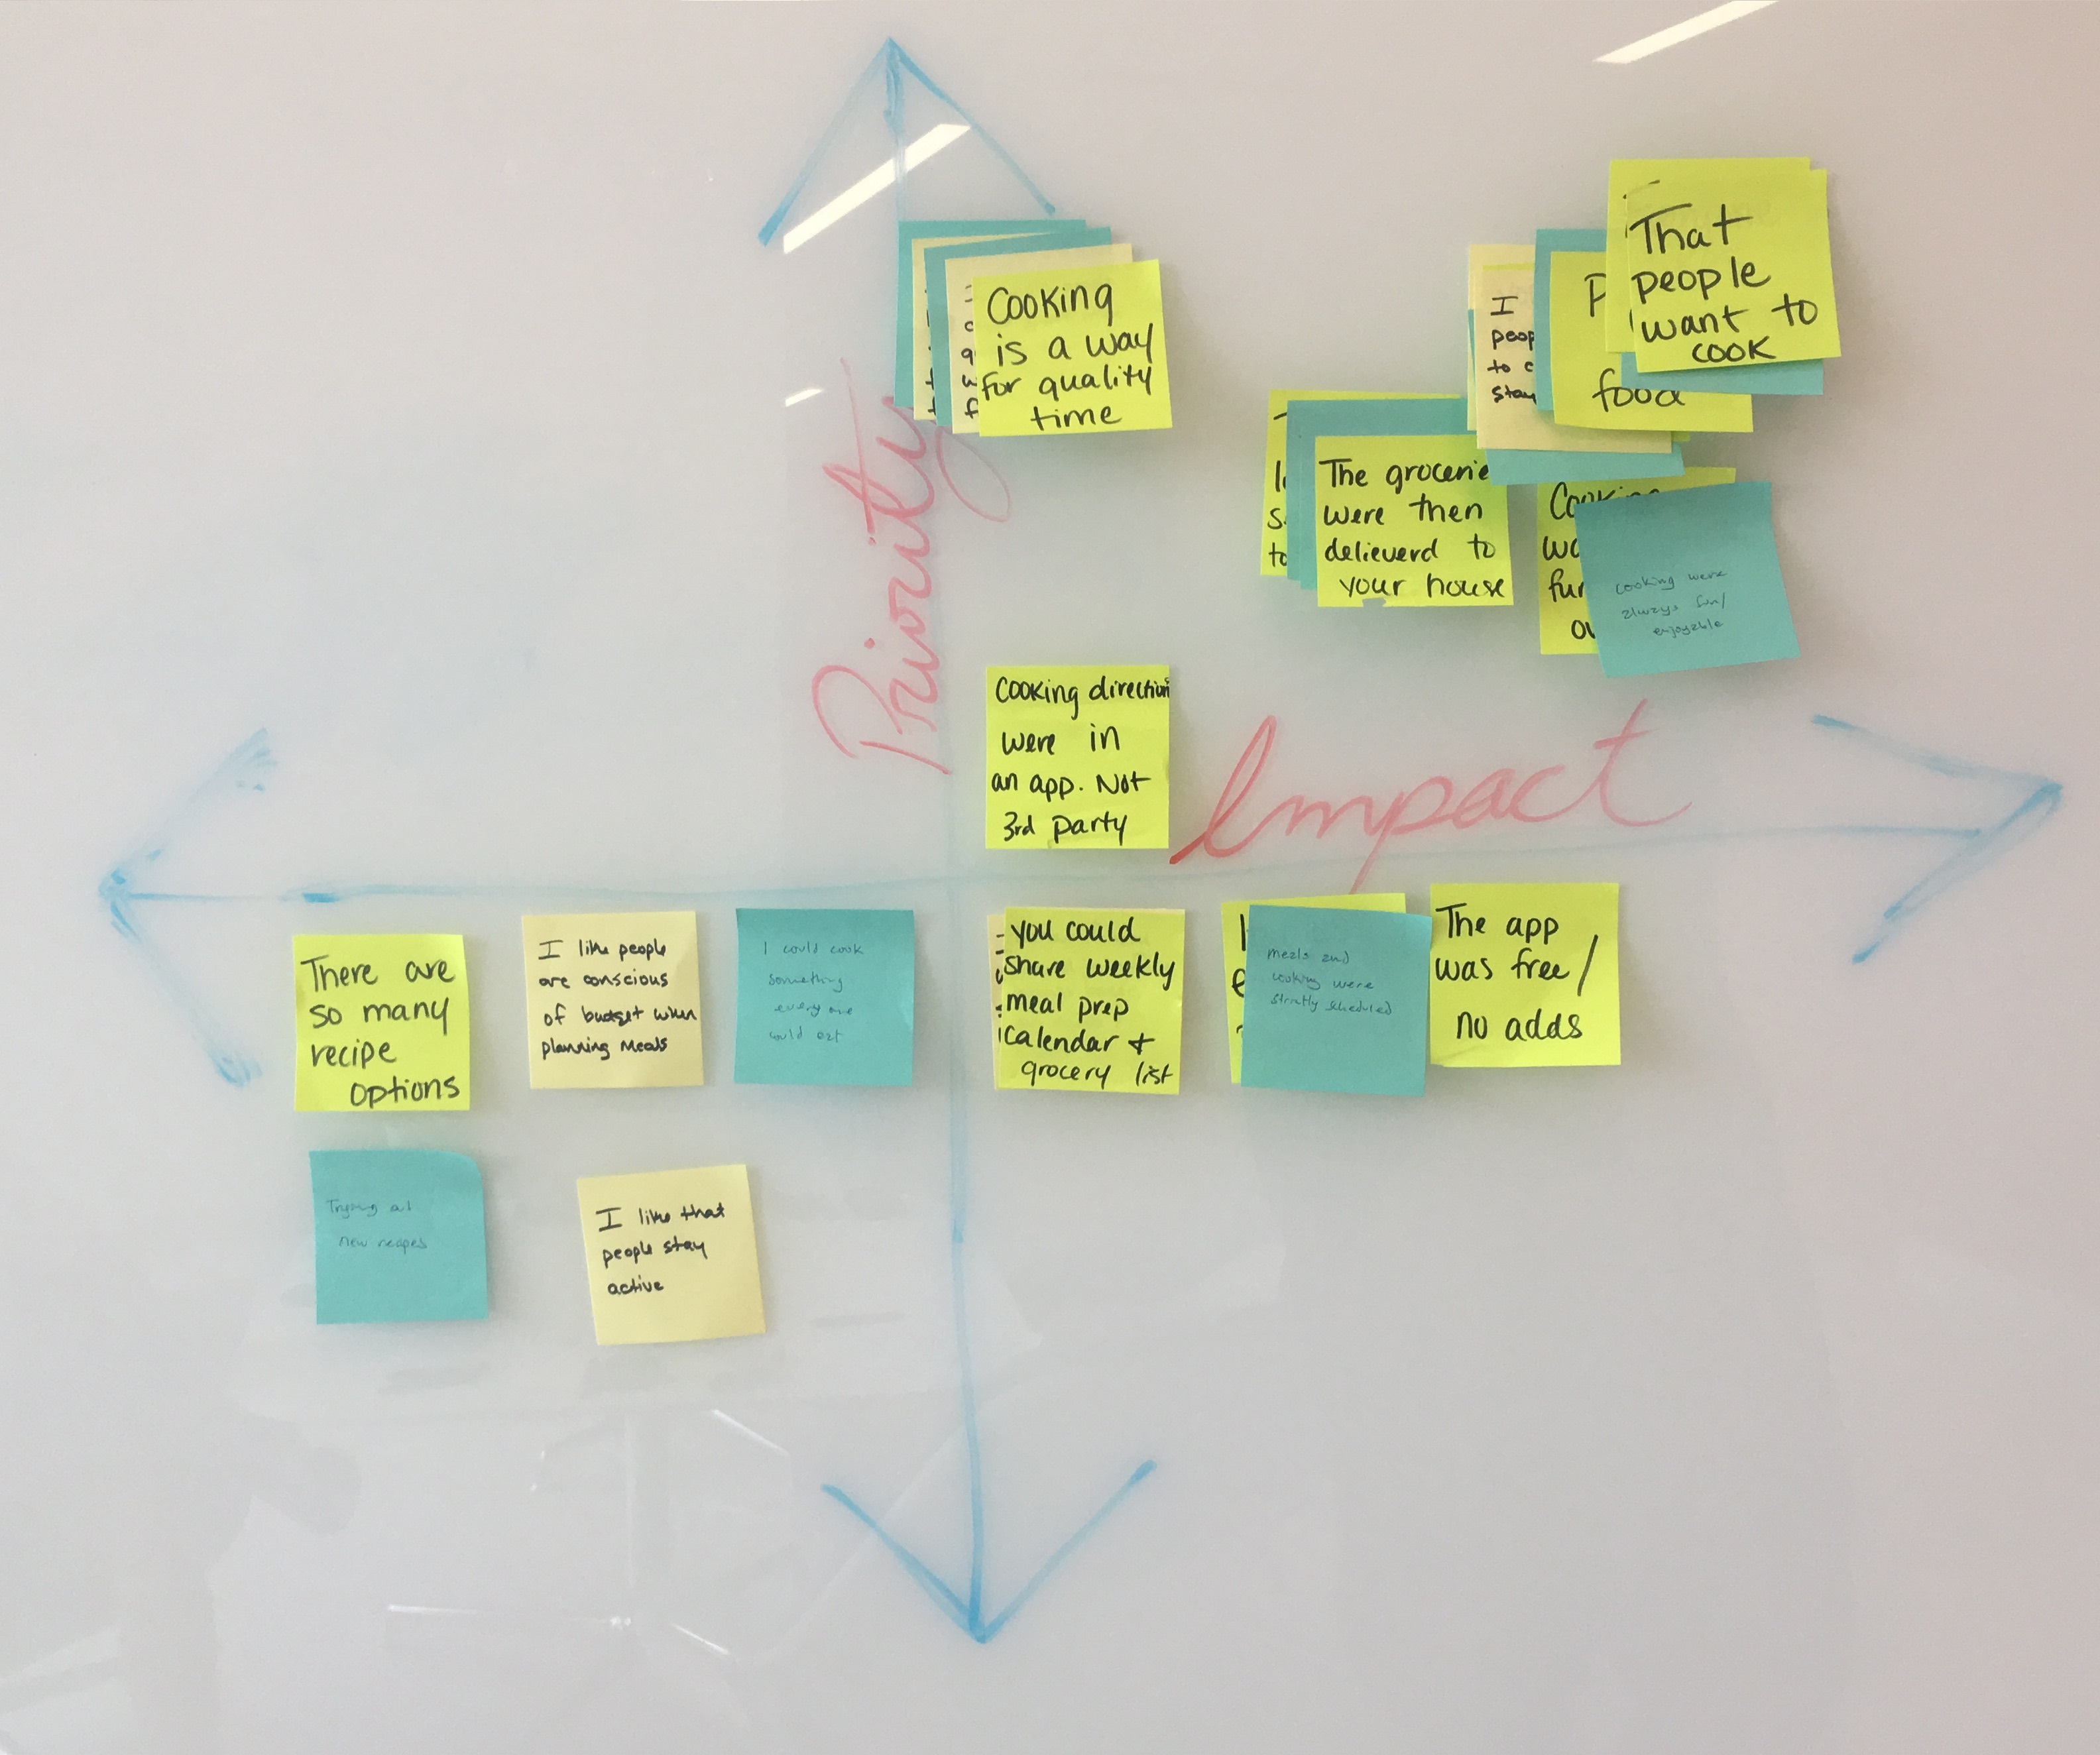 Priority
Impact
Cooking
is a way
for quality
time
That
people
want to
cook
I
to
stay
food
The grocerie
were then
delieverd to
your house
cooking were
always fun/
enjoyable
Cooking direction
were in
an app. Not
3rd party
There are
so many
recipe
options
I like people
are conscious
of budget when
planning meals
I could cook
something
everyone
could eat
you could
share weekly
meal prep
calendar +
grocery list
meals and
cooking were
strictly scheduled
The app
was free/
no adds
Trying out
new recipes
I like that
people stay
active